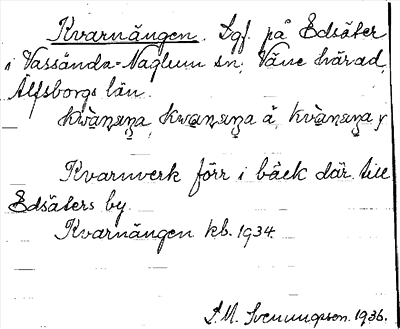 Kvarnängen. Lgf. på Edsäter
i Vassända-Naglum sn, Väne härad,
Älfsborgs län.
Kvarnverk förr i bäck där till
Edsäters by.
Kvarnängen kb. 1934.
S.M. Svenungsson. 1936.